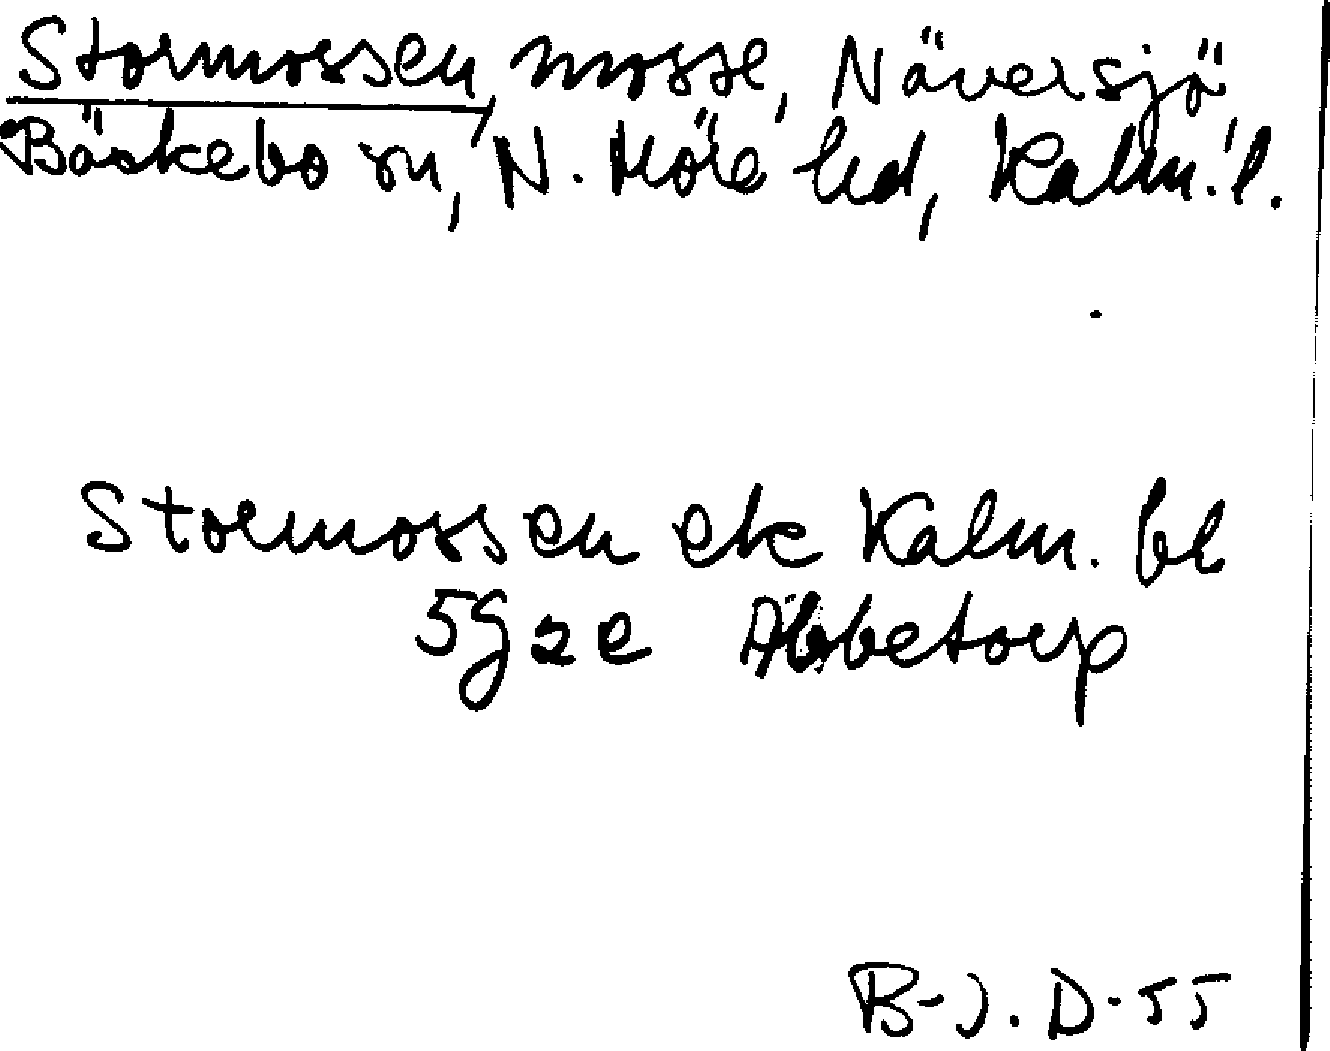 Stormossen, mosse, Näversjö
Bäckebo sn, N. Möre hd, Kalm. l.
Stormossen ek Kalm. bl
5G 2e Äbbetorp
B-J. D-55